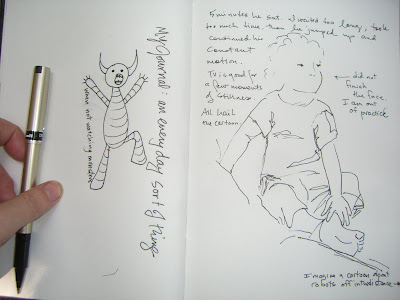 My Journal: an every day sort of thing
5 minutes he sat. I waited too long, took
too much time then he jumped up and
continued his
constant
motion.
TV is good for
a few moments
of stillness.
All hail
the cartoon.
← did not
finish
the face
I am out
of practice
I imagine a cartoon about
robots off in the distance →